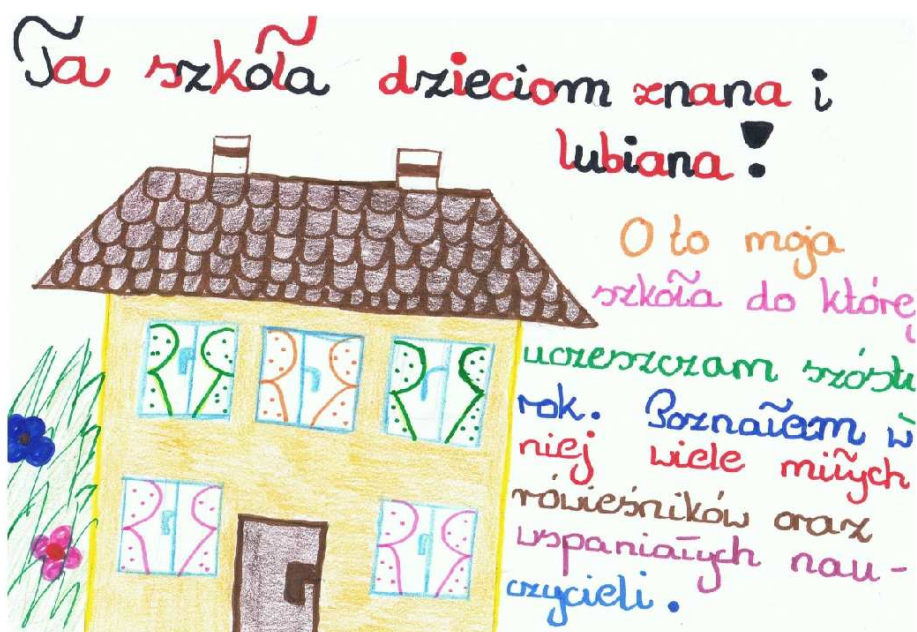 Ta szkoła dzieciom znana i
lubiana!
O to moja
szkoła do której
uczęszczam szósty
rok. Poznałam w
niej wiele miłych
rówieśników oraz
wspaniałych nau-
czycieli.